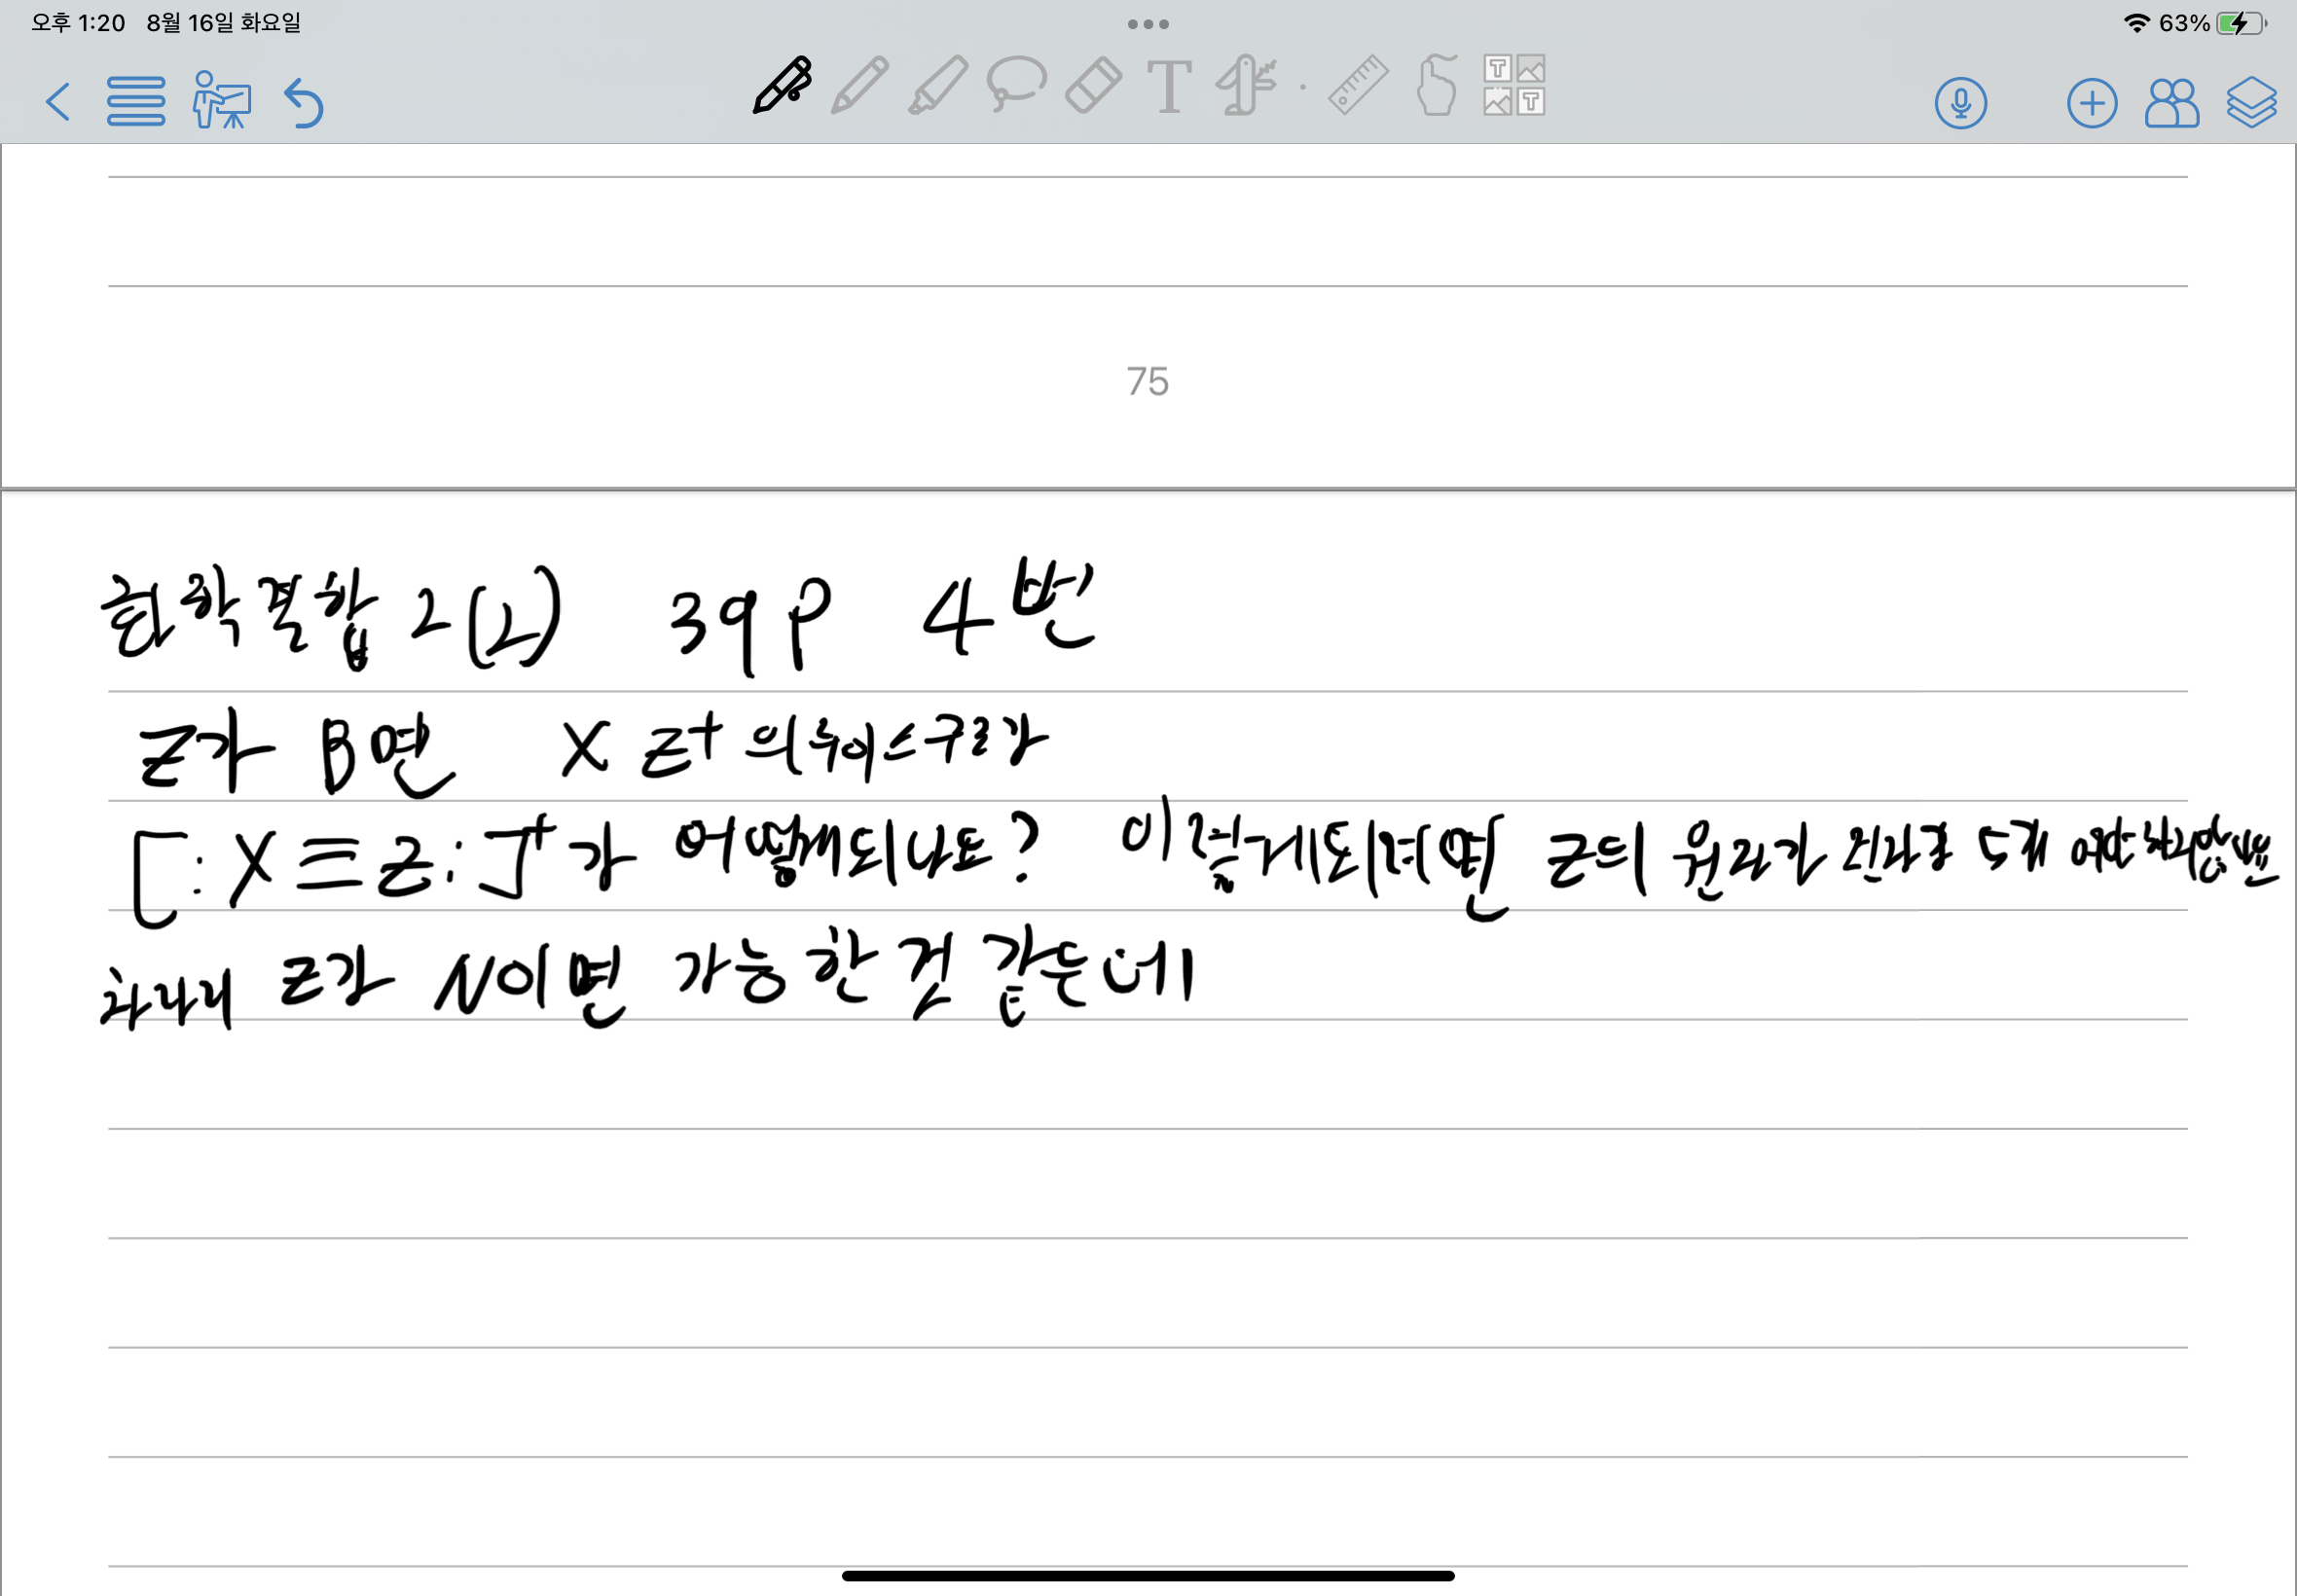 오후 1:20 8월 16일 화요일
63%
75
화학결합 2(2) 39p 4번
Z가 B면 XZ+의 루이스 구조가
[:X≡Z:]+가 어떻게 되나요? 이렇게 되려면 Z의 원자가 전자가 5개 여야
Z가 N이면 가능한 것 같은데